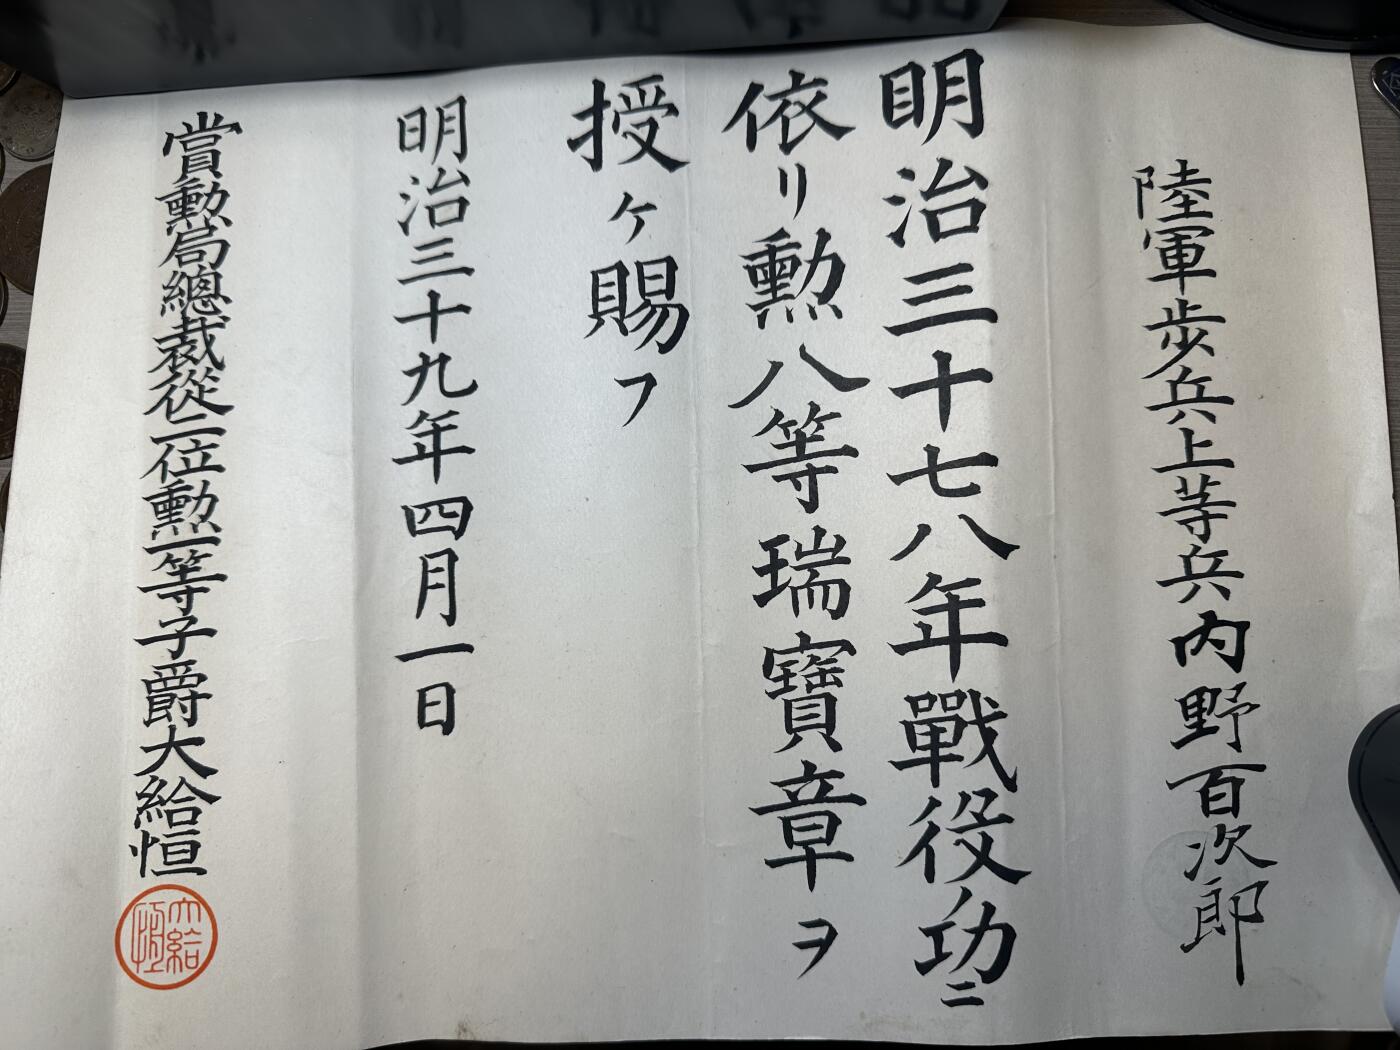 陸軍歩兵上等兵内野百次郎
明治三十七八年戰役ノ功ニ
依リ勲八等瑞寶章ヲ
授ケ賜フ
明治三十九年四月一日
賞勲局總裁從二位勲一等子爵大給恒
大給恒